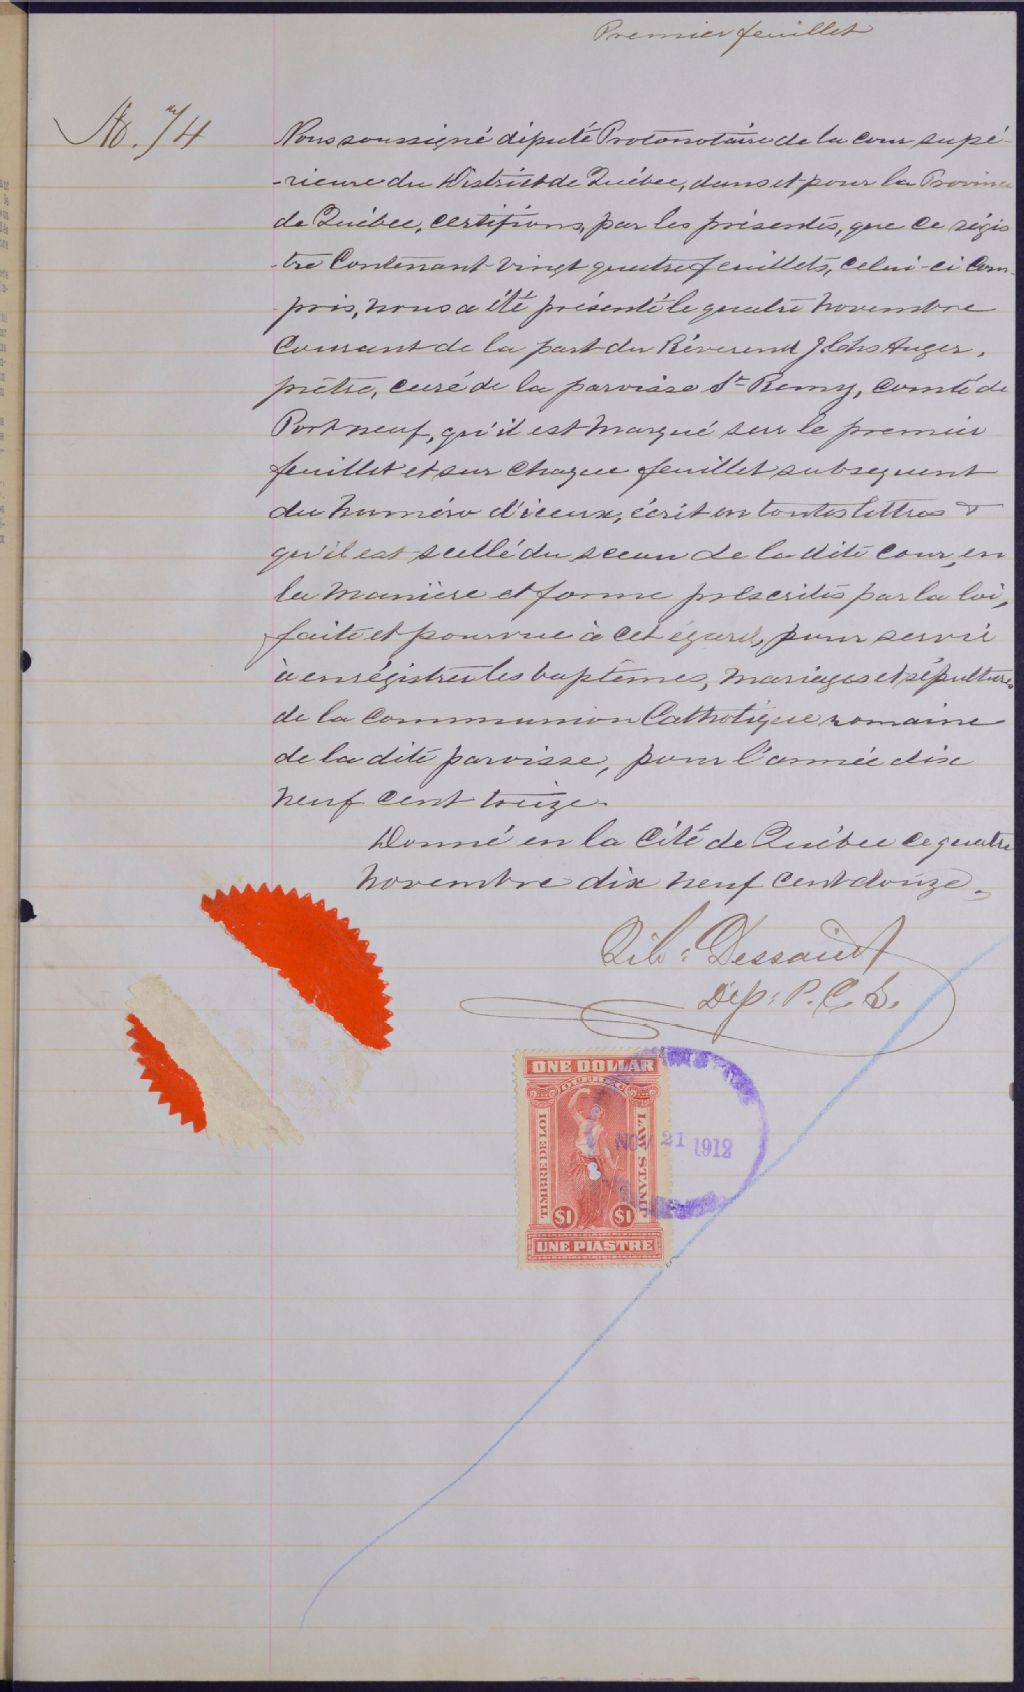 Premier feuillet
No. 74
Nous soussigné député Protonotaire de la cour supé-
-rieure du District de Québec, dans et pour la Province
de Québec, certifions, par les présentes, que ce régis
-tre Contenant vingt quatre feuillets, celui-ci Com-
pris, nous a été présenté le quatre novembre
Courant de la part du Révérend J. Chs Auger,
prêtre, curé de la paroisse St Remy, Comté de
Portneuf, qu'il est marqué sur le premier
feuillet et sur chaque feuillet subsequent
du numéro d'iceux, écrit en toutes lettres &
qu'il est scellé du sceau de la dite cour, en
la manière et forme prescrites par la loi,
faite et pourvue à cet égard, pour servir
à enrégistrer les baptêmes, mariages et sépultures
de la communion Catholique romaine
de la dite paroisse, pour l'année dix
neuf cent treize.
Donné en la Cité de Québec ce quatre
novembre dix neuf cent douze,
Dessaint
Dep: P. C. S.
ONE DOLLAR
QUEBEC
TIMBRE DE LOI
LAW STAMP
NOV 21 1912
$1 $1
UNE PIASTRE